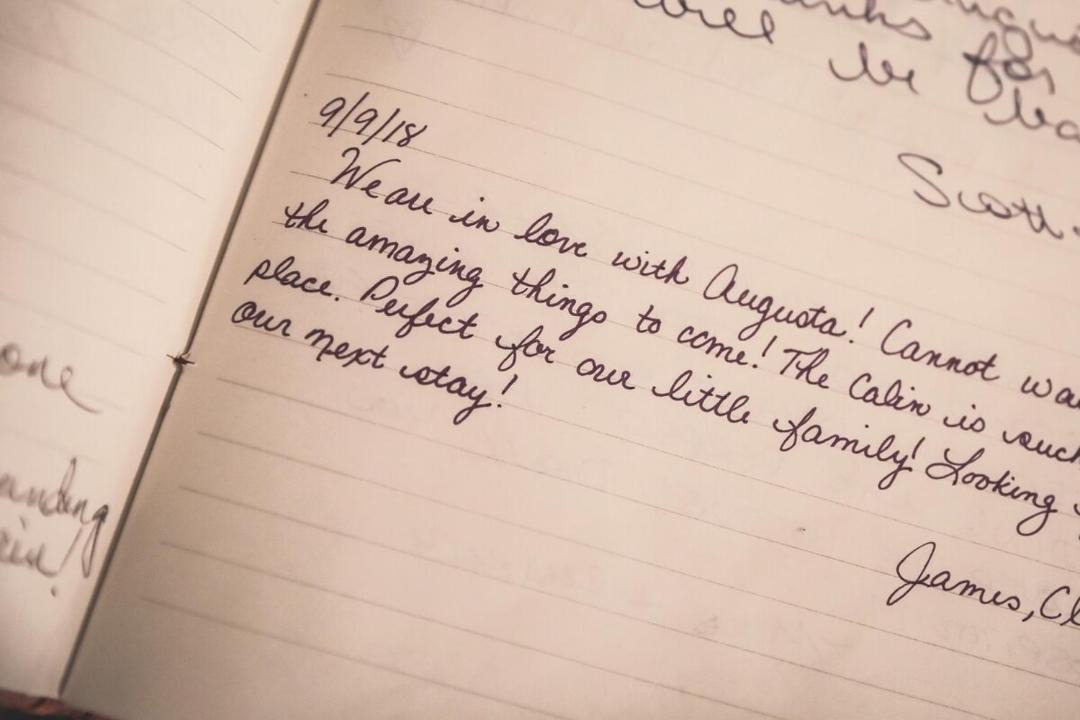 will be
for
Scott
9/9/18
We are in love with Augusta! Cannot
the amazing things to come! The Cabin is such
place. Perfect for our little family! Looking
our next stay!
James,
one